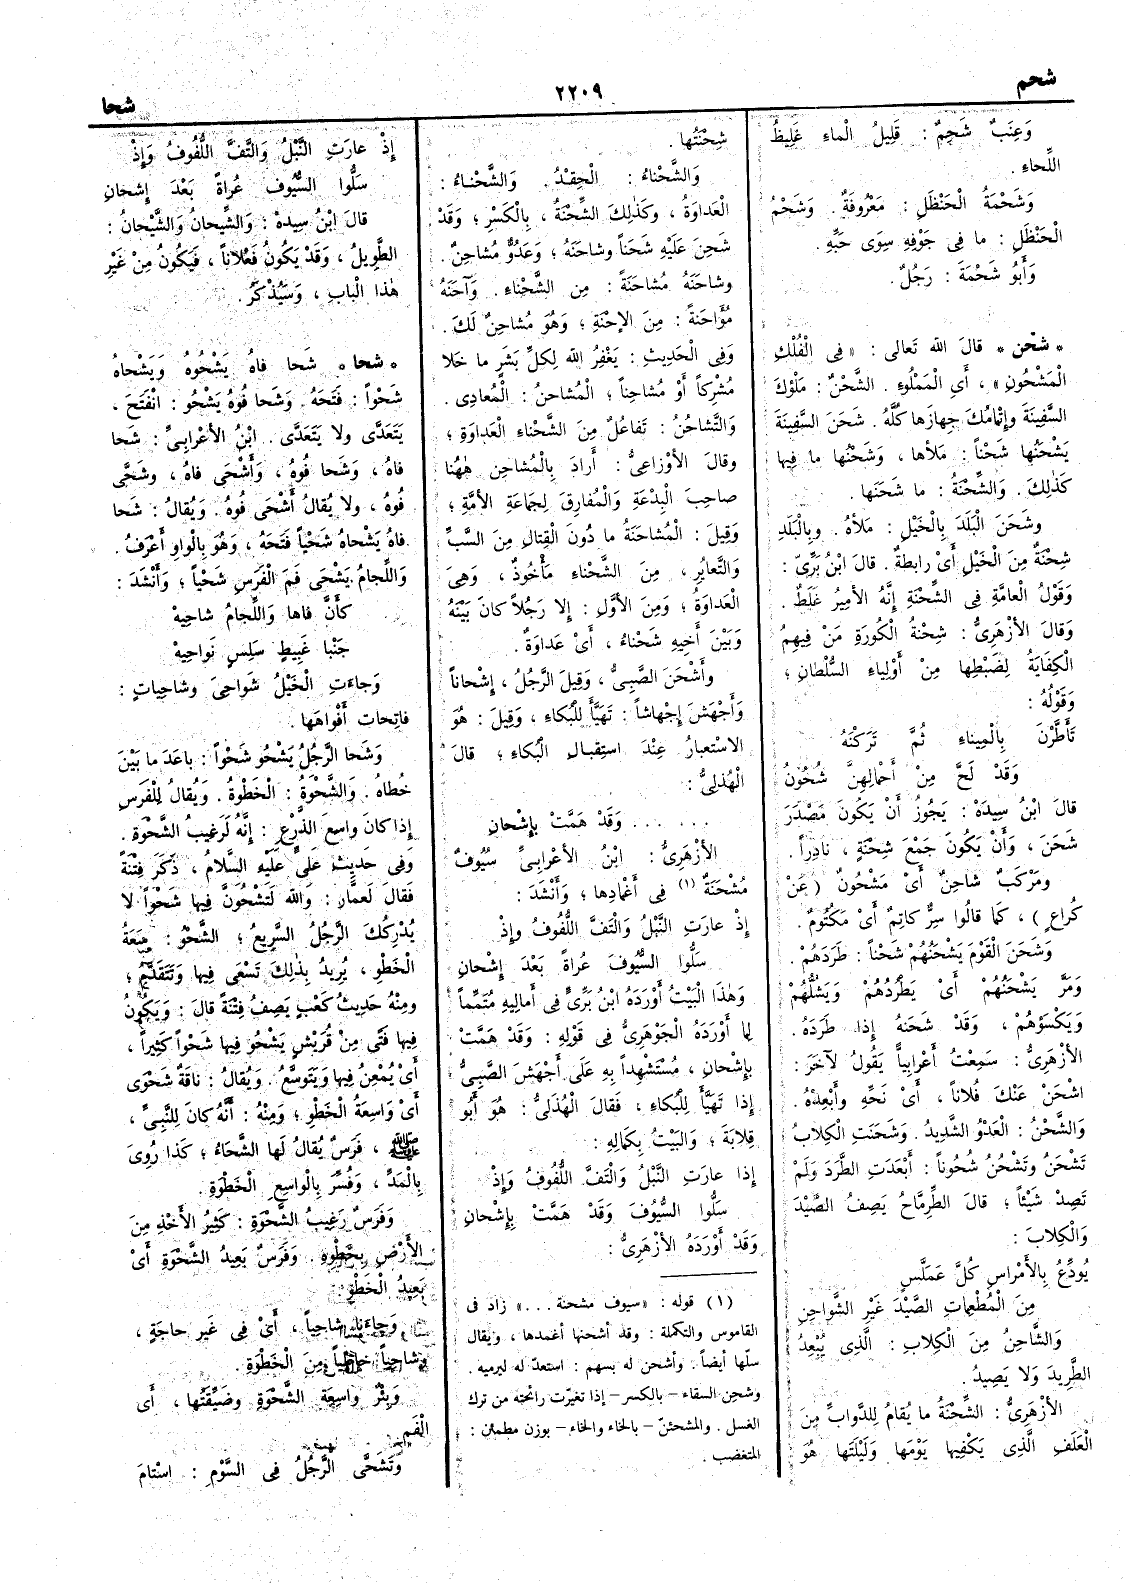 شحم
٢٢٠٩
شحا
وَعِنَبٌ شَحِمٌ : قَلِيلُ الْماءِ غَلِيظُ
اللِّحاءِ .
وَشَحْمَةُ الْحَنْظَلِ : مَعْرُوفَةٌ . وَشَحْمُ
الْحَنْظَلِ : ما فِى جَوْفِهِ سِوَى حَبِّهِ .
وَأَبُو شَحْمَةَ : رَجُلٌ .
* شحن * قالَ اللهُ تَعالى : « فِى الْفُلْكِ
الْمَشْحُونِ » ، أَىِ الْمَمْلُوءِ . الشَّحْنُ : مَلْؤُكَ
السَّفِينَةَ وَإِتْمامُكَ جِهازَها كُلَّهُ . شَحَنَ السَّفِينَةَ
يَشْحَنُها شَحْناً : مَلَأَها ، وَشَحَنَها ما فِيها
كَذٰلِكَ . وَالشِّحْنَةُ : ما شَحَنَها .
وَشَحَنَ الْبَلَدَ بِالْخَيْلِ : مَلَأَهُ . وبِالْبَلَدِ
شِحْنَةٌ مِنَ الْخَيْلِ أَىْ رابِطَةٌ . قالَ ابْنُ بَرِّىّ :
وَقَوْلُ الْعامَّةِ فِى الشِّحْنَةِ إِنَّهُ الأَمِيرُ غَلَطٌ .
وَقالَ الأَزْهَرِىُّ : شِحْنَةُ الْكُورَةِ مَنْ فِيهِمُ
الْكِفايَةُ لِضَبْطِها مِنْ أَوْلِياءِ السُّلْطانِ ؛
وَقَوْلُهُ :
تَأَطَّرْنَ بِالْمِيناءِ ثُمَّ تَرَكْنَهُ
وَقَدْ لَحَّ مِنْ أَحْمالِهِنَّ شُحُونُ
قالَ ابْنُ سِيدَهْ : يَجُوزُ أَنْ يَكُونَ مَصْدَرَ
شَحَنَ ، وَأَنْ يَكُونَ جَمْعَ شِحْنَةٍ ، نادِراً .
ومَرْكَبٌ شاحِنٌ أَىْ مَشْحُونٌ ( عَنْ
كُراعٍ ) ، كَما قالُوا سِرٌّ كاتِمٌ أَىْ مَكْتُومٌ .
وَشَحَنَ الْقَوْمَ يَشْحَنُهُمْ شَحْناً : طَرَدَهُمْ .
وَمَرَّ يَشْحَنُهُمْ أَىْ يَطْرُدُهُمْ وَيَشُلُّهُمْ
وَيَكْسَؤُهُمْ ، وَقَدْ شَحَنَهُ إِذا طَرَدَهُ .
الأَزْهَرِىُّ : سَمِعْتُ أَعْرابِيًّا يَقُولُ لآخَرَ :
اشْحَنْ عَنْكَ فُلاناً ، أَىْ نَحِّهِ وأَبْعِدْهُ .
وَالشَّحْنُ : الْعَدْوُ الشَّدِيدُ . وَشَحَنَتِ الْكِلابُ
تَشْحَنُ وَتَشْحُنُ شُحُوناً : أَبْعَدَتِ الطَّرَدَ وَلَمْ
تَصِدْ شَيْئاً ؛ قالَ الطِّرِمَّاحُ يَصِفُ الصَّيْدَ
وَالْكِلابَ :
يُوَدِّعُ بِالأَمْراسِ كُلَّ عَمَلَّسٍ
مِنَ الْمُطْعِماتِ الصَّيْدَ غَيْرِ الشَّواحِنِ
وَالشَّاحِنُ مِنَ الْكِلابِ : الَّذِى يُبْعِدُ
الطَّرِيدَ وَلا يَصِيدُ .
الأَزْهَرِىُّ : الشِّحْنَةُ ما يُقامُ لِلدَّوابِّ مِنَ
الْعَلَفِ الَّذِى يَكْفِيها يَوْمَها وَلَيْلَتَها هُوَ
شِحْنَتُها .
وَالشَّحْناءُ : الْحِقْدُ . وَالشَّحْناءُ :
الْعَداوَةُ ، وكَذٰلِكَ الشِّحْنَةُ ، بِالْكَسْرِ ؛ وَقَدْ
شَحِنَ عَلَيْهِ شَحَناً وشاحَنَهُ ؛ وَعَدُوٌّ مُشاحِنٌ .
وشاحَنَهُ مُشاحَنَةً : مِنَ الشَّحْناءِ . وَآحَنَهُ
مُؤَاحَنَةً : مِنَ الإِحْنَةِ ؛ وَهُوَ مُشاحِنٌ لَكَ .
وَفِى الْحَدِيثِ : يَغْفِرُ اللهُ لِكلِّ بَشَرٍ ما خَلا
مُشْرِكاً أَوْ مُشاحِناً ؛ الْمُشاحِنُ : الْمُعادِى .
وَالتَّشاحُنُ : تَفاعُلٌ مِنَ الشَّحْناءِ الْعَداوَةِ ؛
وقالَ الأَوْزاعِىُّ : أَرادَ بِالْمُشاحِنِ هٰهُنا
صاحِبَ الْبِدْعَةِ وَالْمُفارِقَ لِجَماعَةِ الأُمَّةِ ؛
وَقِيلَ : الْمُشاحَنَةُ ما دُونَ الْقِتالِ مِنَ السَّبِّ
وَالتَّعايُرِ ، مِنَ الشَّحْناءِ مَأْخُوذٌ ، وَهِىَ
الْعَداوَةُ ؛ وَمِنَ الأَوَّلِ : إِلا رَجُلاً كانَ بَيْنَهُ
وَبَيْنَ أَخِيهِ شَحْناءُ ، أَىْ عَداوَةٌ .
وأَشْحَنَ الصَّبِىُّ ، وَقِيلَ الرَّجُلُ ، إِشْحاناً
وَأَجْهَشَ إِجْهاشاً : تَهَيَّأَ لِلْبُكاءِ ، وَقِيلَ : هُوَ
الاسْتعبارُ عِنْدَ اسْتِقْبالِ الْبُكاءِ ؛ قالَ
الْهُذَلِىُّ :
. . . . . . وَقَدْ هَمَّتْ بِإِشْحانِ
الأَزْهَرِىُّ : ابْنُ الأَعْرابِىِّ سُيُوفٌ
مُشْحَنَةٌ (١) فِى أَغْمادِها ؛ وَأَنْشَدَ :
إِذْ عارَتِ النَّبْلُ وَالْتَفَّ اللُّفُوفُ وإِذْ
سَلُّوا السُّيُوفَ عُراةً بَعْدَ إِشْحانِ
وَهٰذا الْبَيْتُ أَوْرَدَهُ ابْنُ بَرِّىٍّ فِى أَمالِيهِ مُتَمِّماً
لِما أَوْرَدَهُ الْجَوْهَرِىُّ فِى قَوْلِهِ : وَقَدْ هَمَّتْ
بِإِشْحانِ ، مُسْتَشْهِداً بِهِ عَلَى أَجْهَشَ الصَّبِىُّ
إِذا تَهَيَّأَ لِلْبُكاءِ ، فَقالَ الْهُذَلِىُّ : هُوَ أَبُو
قِلابَةَ ؛ وَالْبَيْتُ بِكَمالِهِ :
إِذا عارَتِ النَّبْلُ وَالْتَفَّ اللُّفُوفُ وَإِذْ
سَلُّوا السُّيُوفَ وَقَدْ هَمَّتْ بِإِشْحانِ
وَقَدْ أَوْرَدَهُ الأَزْهَرِىُّ :
(١) قوله : «سيوف مشحنة . . .» زاد فى
القاموس والتكملة : وقد أشحنها أغمدها ، ويقال
سلّها أيضاً . وأشحن له بسهم : استعدّ له ليرميه .
وشحن السقاء – بالكسر – إذا تغيرت رائحته من ترك
الغسل . والمشحئنّ – بالحاء والخاء – بوزن مطمئن :
المتغضب .
إِذْ عارَتِ النَّبْلُ وَالْتَفَّ اللُّفُوفُ وَإِذْ
سَلُّوا السُّيُوفَ عُراةً بَعْدَ إِشْحانِ
قالَ ابْنُ سِيدَهْ : وَالشِّيحانُ وَالشَّيْحانُ :
الطَّوِيلُ ، وَقَدْ يَكُونُ فَعْلاناً ، فَيَكُونُ مِنْ غَيْرِ
هٰذا الْبابِ ، وَسَيُذْكَرُ .
* شحا * شَحا فاهُ يَشْحُوهُ وَيَشْحاهُ
شَحْواً : فَتَحَهُ . وَشَحا فُوهُ يَشْحُو : انْفَتَحَ ،
يَتَعَدَّى ولا يَتَعَدَّى . ابْنُ الأَعْرابِىِّ : شَحا
فاهُ ، وَشَحا فُوهُ ، وَأَشْحَى فاهُ ، وشَحَّى
فُوهُ ، ولا يُقالُ أَشْحَى فُوهُ . وَيُقالُ : شَحا
فاهُ يَشْحاهُ شَحْياً فَتَحَهُ ، وَهُوَ بِالْواوِ أَعْرَفُ .
وَاللِّجامُ يَشْحَى فَمَ الْفَرَسِ شَحْياً ؛ وَأَنْشَدَ :
كَأَنَّ فاها وَاللِّجامُ شاحِيهْ
جَنْبا غَبِيطٍ سَلِسٍ نَواحِيهْ
وَجاءَتِ الْخَيْلُ شَواحِىَ وشاحِياتٍ :
فاتِحات أَفْواهَها .
وَشَحا الرَّجُلُ يَشْحُو شَحْواً : باعَدَ ما بَيْنَ
خُطاهُ . وَالشَّحْوَةُ : الْخَطْوَةُ . وَيُقالُ لِلْفَرَسِ
إِذا كانَ واسِعَ الذَّرْعِ : إِنَّهُ لَرَغِيبُ الشَّحْوَةِ .
وَفِى حَدِيثِ عَلِىٍّ عَلَيْهِ السَّلامُ ، ذَكَرَ فِتْنَةً
فَقالَ لَعمَّارٍ : وَاللهِ لَتَشْحُوَنَّ فِيها شَحْواً لا
يُدْرِكُكَ الرَّجُلُ السَّرِيعُ ؛ الشَّحْوُ : سَعَةُ
الْخَطْوِ ، يُرِيدُ بِذٰلِكَ تَسْعَى فِيها وَتَتَقَدَّمُ ؛
ومِنْهُ حَدِيثُ كَعْبٍ يَصِفُ فِتْنَةً قالَ : وَيَكُونُ
فِيها فَتًى مِنْ قُرَيْشٍ يَشْحُو فِيها شَحْواً كَثِيراً ،
أَىْ يُمْعِنُ فِيها وَيَتَوَسَّعُ . وَيُقالُ : ناقَةٌ شَحْوَى
أَىْ وَاسِعَةُ الْخَطْوِ ؛ وَمِنْهُ : أَنَّهُ كانَ لِلنَّبِىِّ ،
ﷺ ، فَرَسٌ يُقالُ لَها الشَّحَاءُ ؛ كَذا رُوِىَ
بِالْمَدِّ ، وَفُسِّرَ بِالْواسِعِ الْخَطْوَةِ .
وَفَرَسٌ رَغِيبُ الشَّحْوَةِ : كَثِيرُ الأَخْذِ مِنَ
الأَرْضِ بِخَطْوِهِ . وَفَرَسٌ بَعِيدُ الشَّحْوَةِ أَىْ
بَعِيدُ الْخَطْوِ .
وَجاءَنا شاحِياً ، أَىْ فِى غَيرِ حاجَةٍ ،
وَشاحِياً خاطِياً مِنَ الْخَطْوَةِ .
وَبِئْرٌ واسِعَةِ الشَّحْوَةِ وضَيِّقَتُها ، أَى
الْفَمِ .
وَتَشَحَّى الرَّجُلُ فِى السَّوْمِ : اسْتامَ